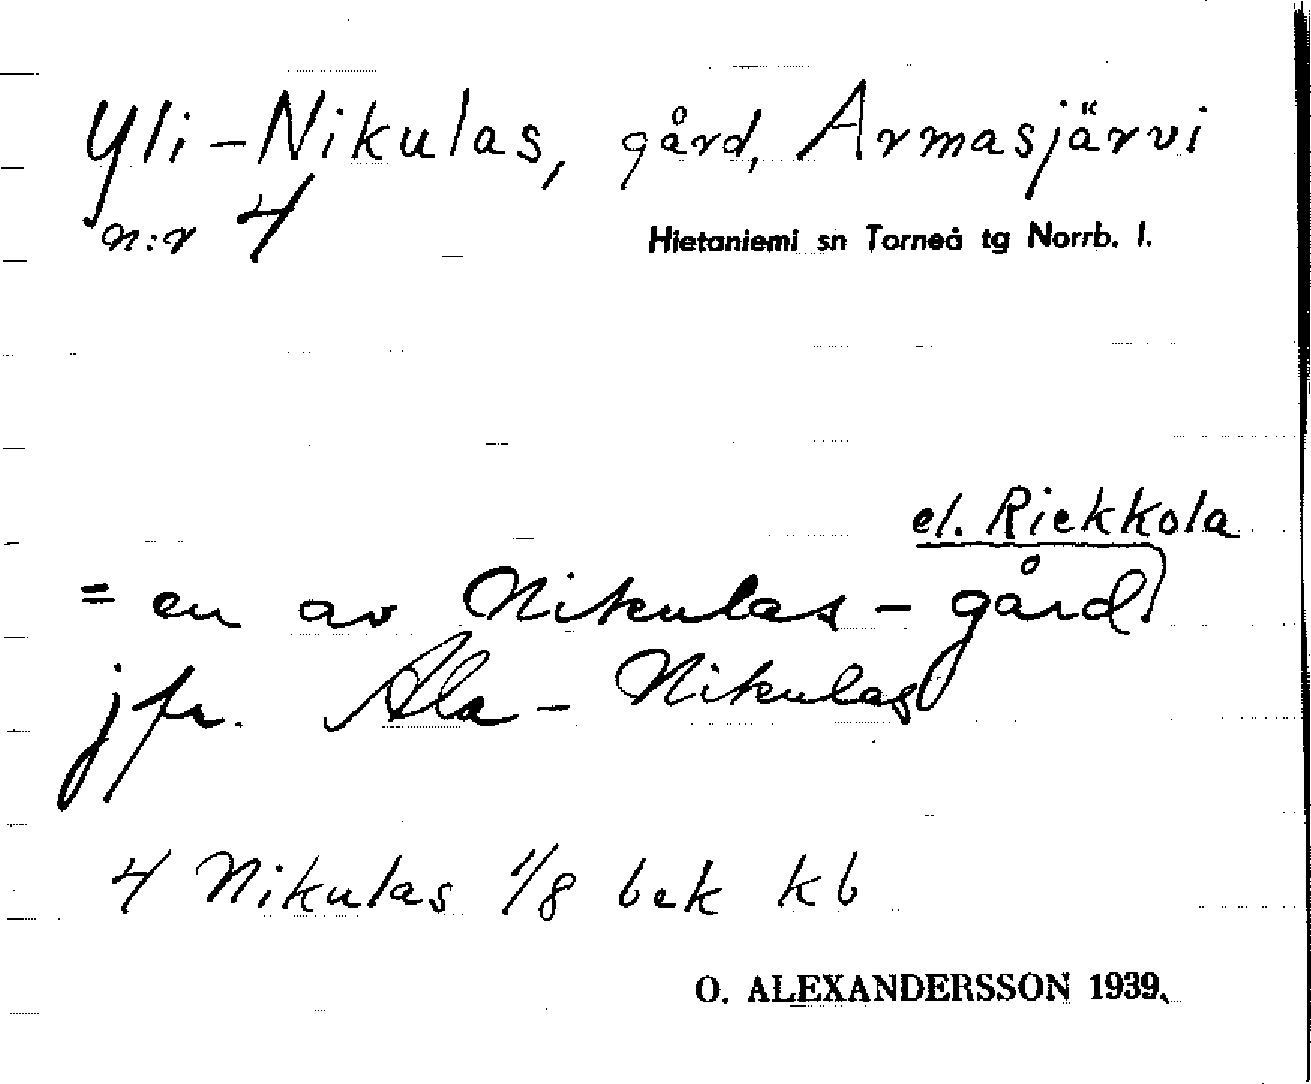 Yli-Nikulas, gård, Armasjärvi
n:r 4
Hietaniemi sn Torneå tg Norrb. l.
el. Riekkola
= en av Nikulas-gård.
jfr. Ala-Nikulas
4 Nikulas 1/8 bek kb
O. ALEXANDERSSON 1939.